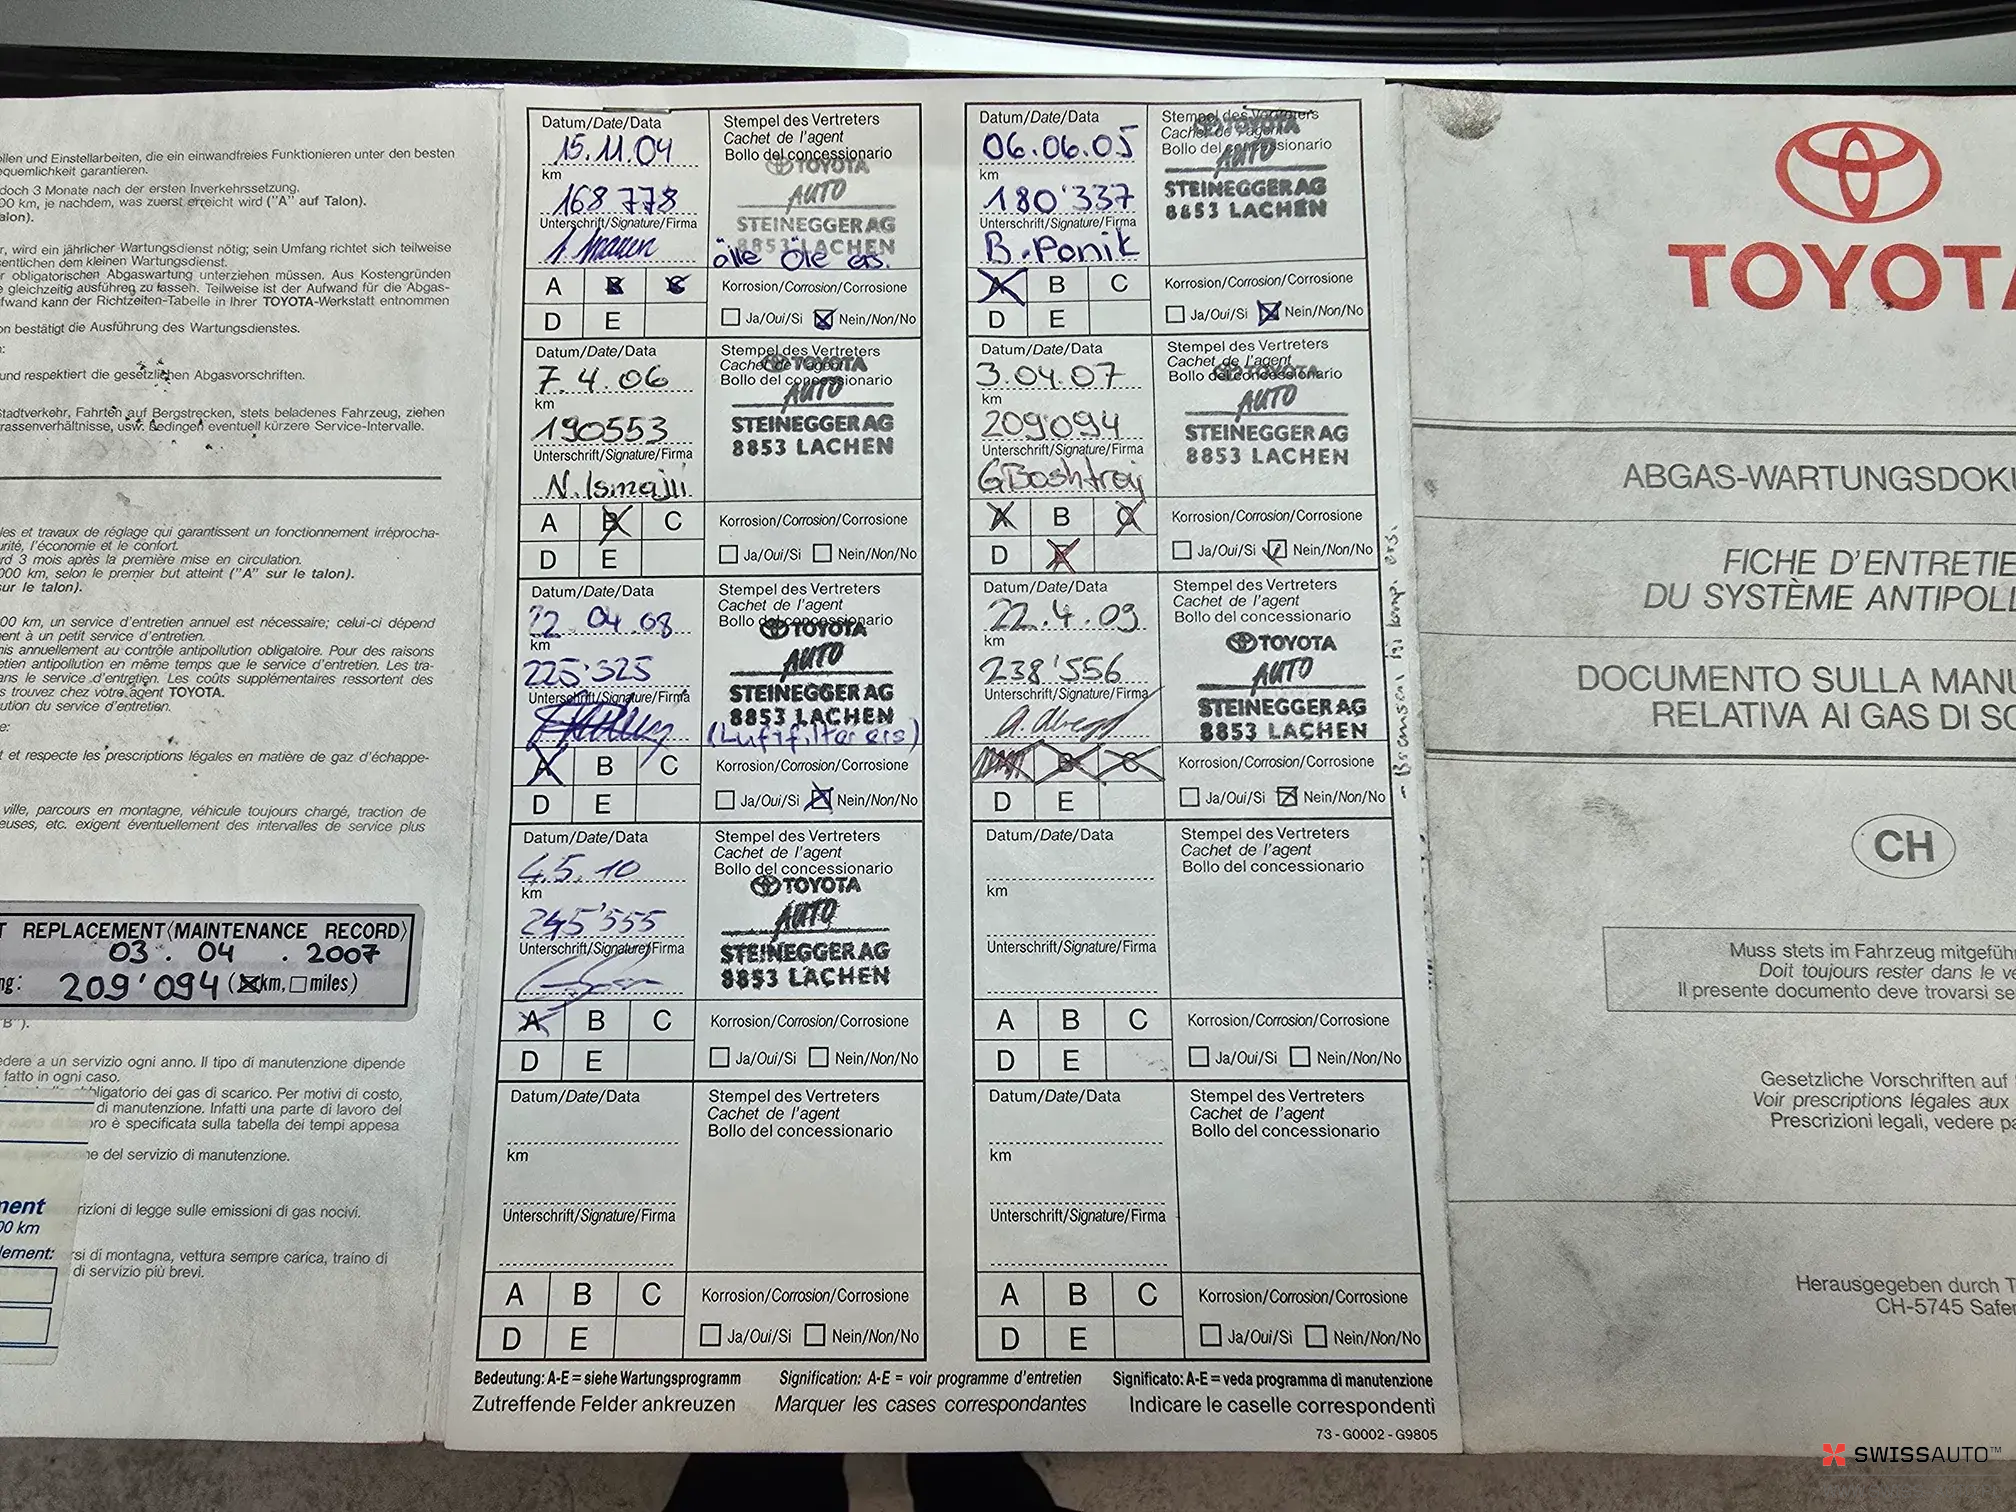 ollen und Einstellarbeiten, die ein einwandfreies Funktionieren unter den besten
equemlichkeit garantieren.
doch 3 Monate nach der ersten Inverkehrssetzung.
00 km, je nachdem, was zuerst erreicht wird ("A" auf Talon).
alon).
r, wird ein jährlicher Wartungsdienst nötig; sein Umfang richtet sich teilweise
sentlichen dem kleinen Wartungsdienst.
r obligatorischen Abgaswartung unterziehen müssen. Aus Kostengründen
e gleichzeitig ausführen zu lassen. Teilweise ist der Aufwand für die Abgas-
fwand kann der Richtzeiten-Tabelle in Ihrer TOYOTA-Werkstatt entnommen
on bestätigt die Ausführung des Wartungsdienstes.
und respektiert die gesetzlichen Abgasvorschriften.
Stadtverkehr, Fahrten auf Bergstrecken, stets beladenes Fahrzeug, ziehen
rassenverhältnisse, usw. bedingen eventuell kürzere Service-Intervalle.
les et travaux de réglage qui garantissent un fonctionnement irréprocha-
urité, l'économie et le confort.
rd 3 mois après la première mise en circulation.
000 km, selon le premier but atteint ("A" sur le talon).
sur le talon).
00 km, un service d'entretien annuel est nécessaire; celui-ci dépend
ment à un petit service d'entretien.
mis annuellement au contrôle antipollution obligatoire. Pour des raisons
etien antipollution en même temps que le service d'entretien. Les tra-
ans le service d'entretien. Les coûts supplémentaires ressortent des
s trouvez chez votre agent TOYOTA.
ution du service d'entretien.
e:
t et respecte les prescriptions légales en matière de gaz d'échappe-
ville, parcours en montagne, véhicule toujours chargé, traction de
euses, etc. exigent éventuellement des intervalles de service plus
T REPLACEMENT (MAINTENANCE RECORD)
03. 04 . 2007
ng: 209'094 (km, miles)
"B").
edere a un servizio ogni anno. Il tipo di manutenzione dipende
fatto in ogni caso.
bbligatorio dei gas di scarico. Per motivi di costo,
di manutenzione. Infatti una parte di lavoro del
oro è specificata sulla tabella dei tempi appesa
ne del servizio di manutenzione.
ment
00 km
lement:
rizioni di legge sulle emissioni di gas nocivi.
rsi di montagna, vettura sempre carica, traino di
di servizio più brevi.
Datum/Date/Data
15.11.04
km
168 778
Unterschrift/Signature/Firma
Stempel des Vertreters
Cachet de l'agent
Bollo del concessionario
TOYOTA
AUTO
STEINEGGER AG
8853 LACHEN
alle Öle ers.
A B C
D E
Korrosion/Corrosion/Corrosione
Ja/Oui/Si Nein/Non/No
Datum/Date/Data
06.06.05
km
180'337
Unterschrift/Signature/Firma
B. Ponik
Stempel des Vertreters
Cachet de l'agent
Bollo del concessionario
TOYOTA
AUTO
STEINEGGER AG
8853 LACHEN
A B C
D E
Korrosion/Corrosion/Corrosione
Ja/Oui/Si Nein/Non/No
Datum/Date/Data
7.4.06
km
190553
Unterschrift/Signature/Firma
N. Ismajli
Stempel des Vertreters
Cachet de l'agent
Bollo del concessionario
TOYOTA
AUTO
STEINEGGER AG
8853 LACHEN
A B C
D E
Korrosion/Corrosion/Corrosione
Ja/Oui/Si Nein/Non/No
Datum/Date/Data
3.04.07
km
209094
Unterschrift/Signature/Firma
Stempel des Vertreters
Cachet de l'agent
Bollo del concessionario
TOYOTA
AUTO
STEINEGGER AG
8853 LACHEN
A B C
D E
Korrosion/Corrosion/Corrosione
Ja/Oui/Si Nein/Non/No
Datum/Date/Data
22.04.08
km
225'325
Unterschrift/Signature/Firma
Stempel des Vertreters
Cachet de l'agent
Bollo del concessionario
TOYOTA
AUTO
STEINEGGER AG
8853 LACHEN
(Luftfilter ers)
A B C
D E
Korrosion/Corrosion/Corrosione
Ja/Oui/Si Nein/Non/No
Datum/Date/Data
22.4.09
km
238'556
Unterschrift/Signature/Firma
Stempel des Vertreters
Cachet de l'agent
Bollo del concessionario
TOYOTA
AUTO
STEINEGGER AG
8853 LACHEN
B C
D E
Korrosion/Corrosion/Corrosione
Ja/Oui/Si Nein/Non/No
Datum/Date/Data
4.5.10
km
245'555
Unterschrift/Signature/Firma
Stempel des Vertreters
Cachet de l'agent
Bollo del concessionario
TOYOTA
AUTO
STEINEGGER AG
8853 LACHEN
A B C
D E
Korrosion/Corrosion/Corrosione
Ja/Oui/Si Nein/Non/No
Datum/Date/Data
km
Unterschrift/Signature/Firma
Stempel des Vertreters
Cachet de l'agent
Bollo del concessionario
A B C
D E
Korrosion/Corrosion/Corrosione
Ja/Oui/Si Nein/Non/No
Datum/Date/Data
km
Unterschrift/Signature/Firma
Stempel des Vertreters
Cachet de l'agent
Bollo del concessionario
A B C
D E
Korrosion/Corrosion/Corrosione
Ja/Oui/Si Nein/Non/No
Datum/Date/Data
km
Unterschrift/Signature/Firma
Stempel des Vertreters
Cachet de l'agent
Bollo del concessionario
A B C
D E
Korrosion/Corrosion/Corrosione
Ja/Oui/Si Nein/Non/No
Bedeutung: A-E = siehe Wartungsprogramm Signification: A-E = voir programme d'entretien Significato: A-E = veda programma di manutenzione
Zutreffende Felder ankreuzen Marquer les cases correspondantes Indicare le caselle correspondenti
73 - G0002 - G9805
TOYOTA
ABGAS-WARTUNGSDOKU
FICHE D'ENTRETIE
DU SYSTÈME ANTIPOLL
DOCUMENTO SULLA MANU
RELATIVA AI GAS DI SC
CH
Muss stets im Fahrzeug mitgefüh
Doit toujours rester dans le vé
Il presente documento deve trovarsi se
Gesetzliche Vorschriften auf
Voir prescriptions légales aux
Prescrizioni legali, vedere pa
Herausgegeben durch T
CH-5745 Safen
SWISSAUTO™